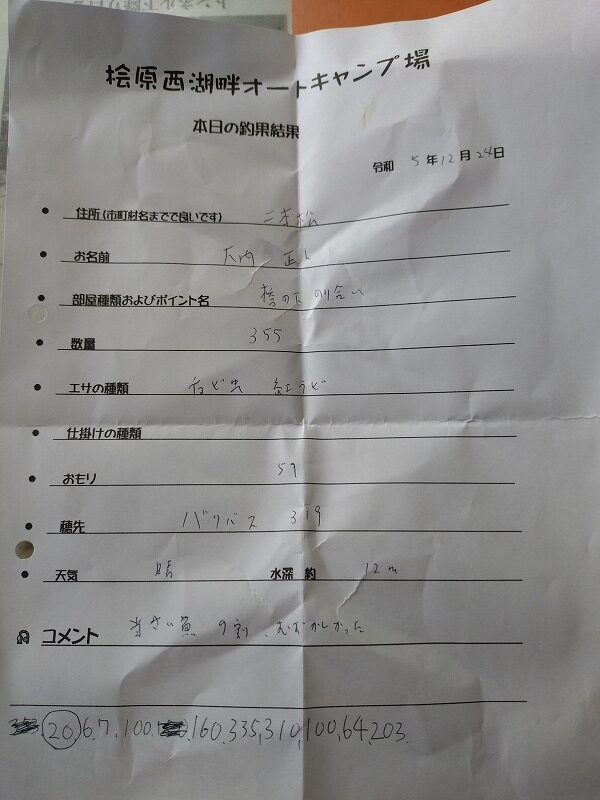 桧原西湖畔オートキャンプ場
本日の釣果結果
令和 5年12月24日
住所(市町村名までで良いです) 二本松
お名前 大内 正人
部屋種類およびポイント名 橋の下 のり合い
数量 355
エサの種類 紅うど
仕掛けの種類
おもり 5g
穂先 バリバス 319
天気 晴 水深 約 12m
コメント 小さい魚 9割、むずかしかった
20 6.7.100. 160.335,310,100,64,203.